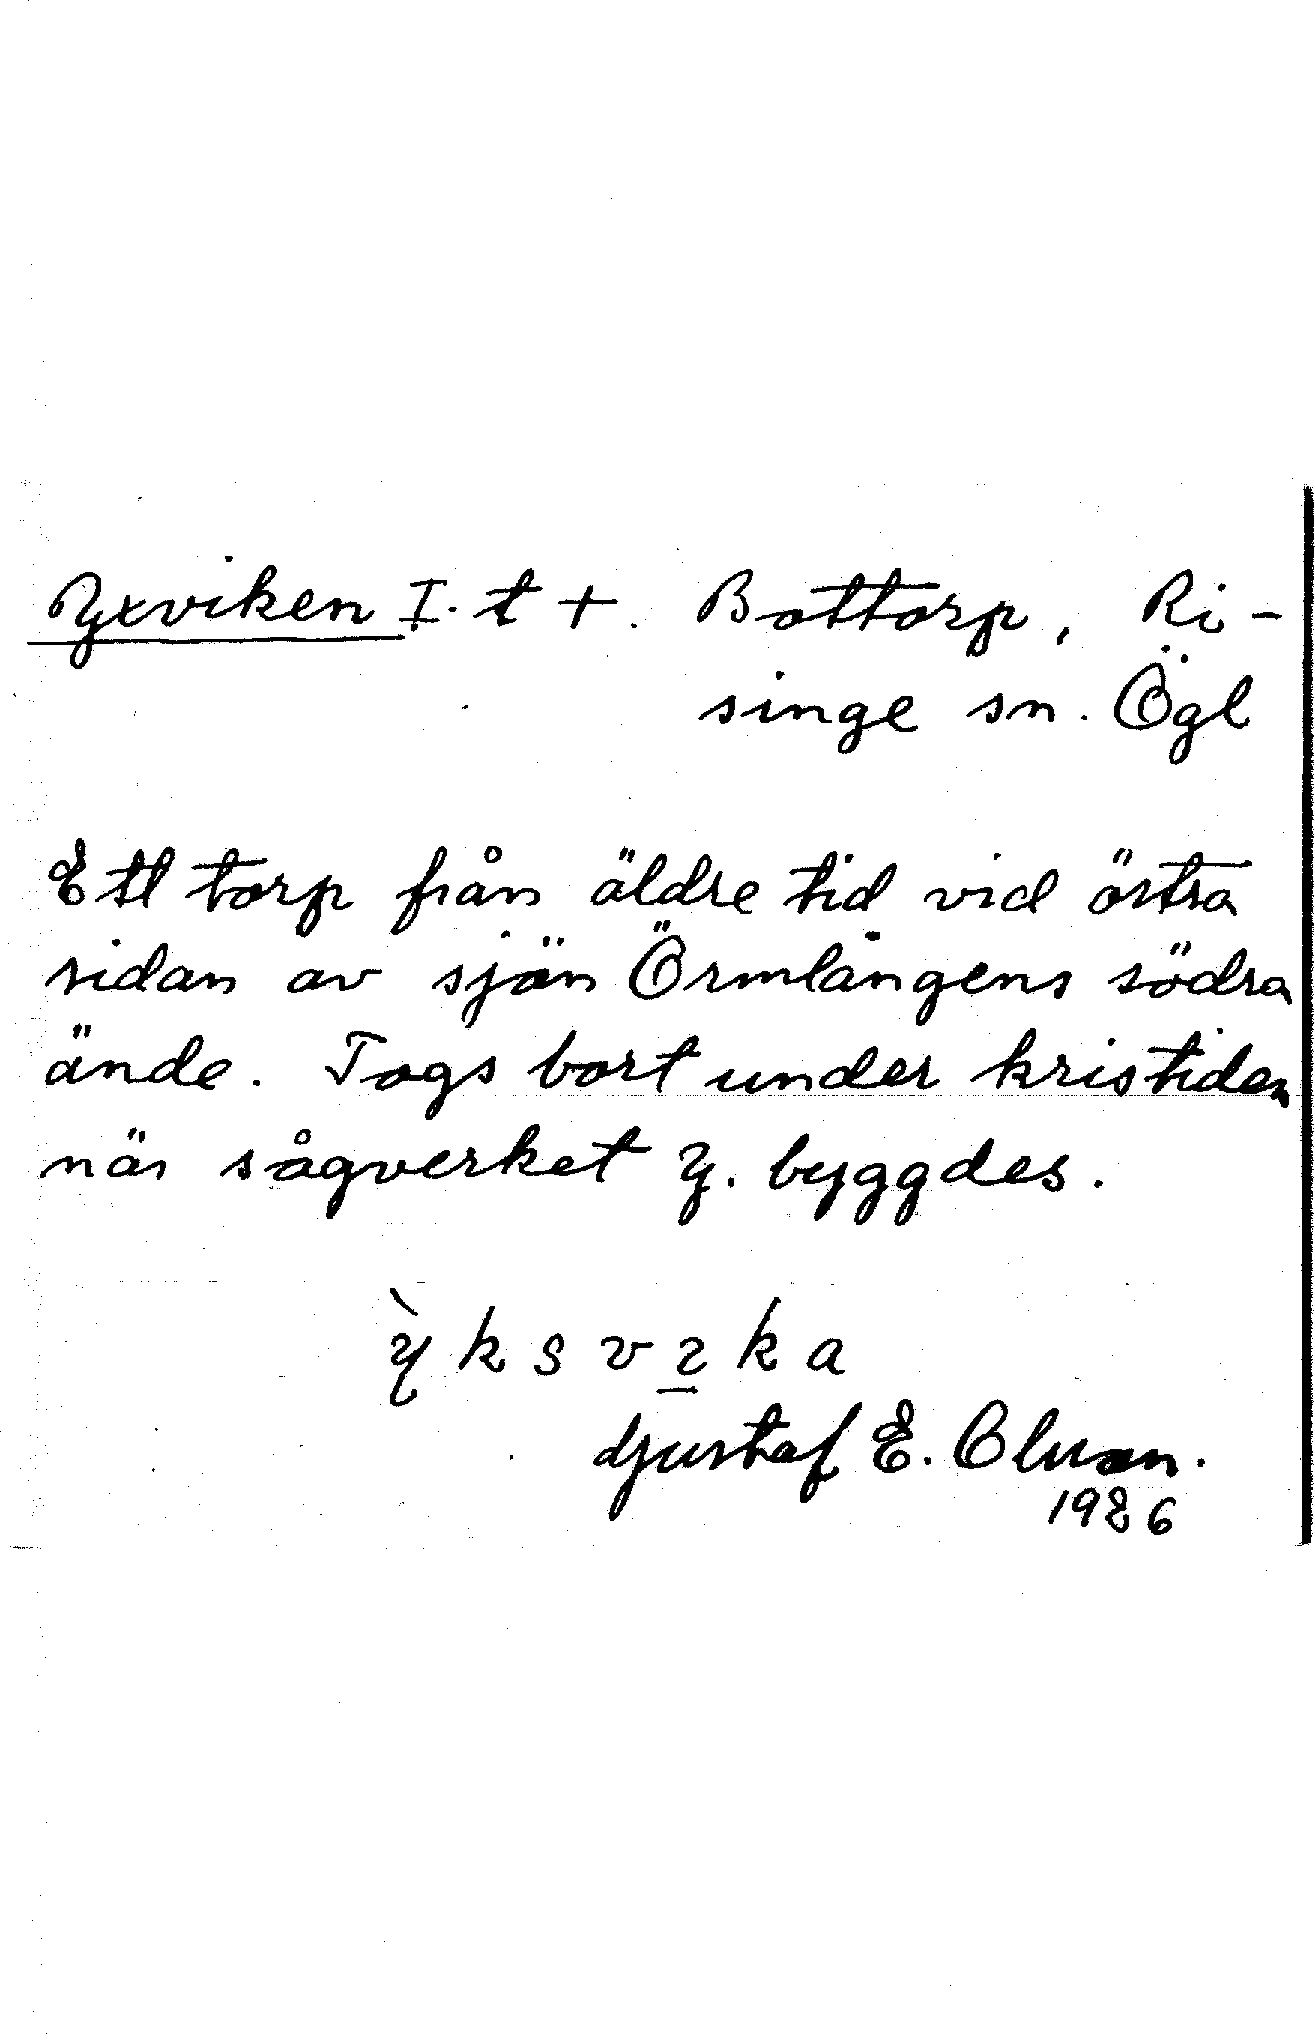 Yxviken I. t +. Bottorp, Ri-
singe sn. Ögl
Ett torp från äldre tid vid östra
sidan av sjön Örmlångens södra
ände. Togs bort under kristiden
när sågverket Y. byggdes.
ỳksvɪ̱ka
Gustaf E. Olsson.
1986